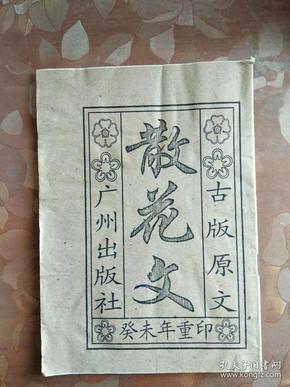 古版原文
散花文
广州出版社
癸未年重印
孔夫子旧书网